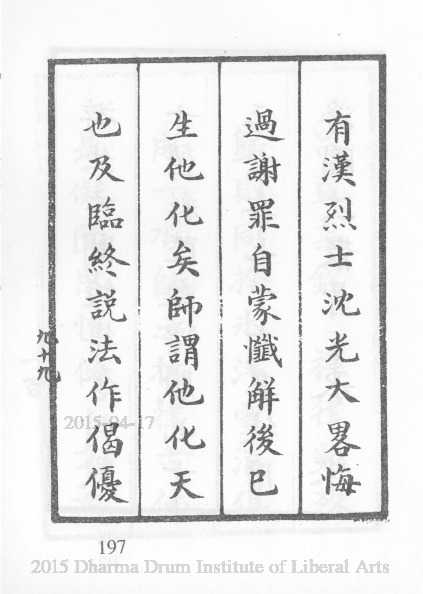 有漢烈士沈光大畧悔
過謝罪自蒙懺解後已
生他化矣師謂他化天
也及臨終説法作偈優
九十九
2015-04-17
197
2015 Dharma Drum Institute of Liberal Arts